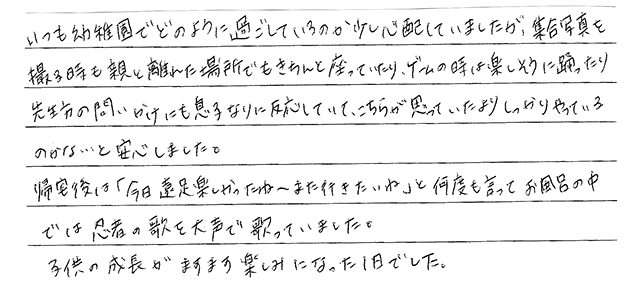 いつも幼稚園でどのように過ごしているのか少し心配していましたが、集合写真を
撮る時も親と離れた場所でもきちんと座っていたり、ゲームの時は楽しそうに踊ったり
先生方の問いかけにも息子なりに反応していて、こちらが思っていたよりしっかりやっている
のかな…と安心しました。
帰宅後は「今日遠足楽しかったね〜また行きたいね」と何度も言ってお風呂の中
では忍者の歌を大声で歌っていました。
子供の成長がますます楽しみになった1日でした。